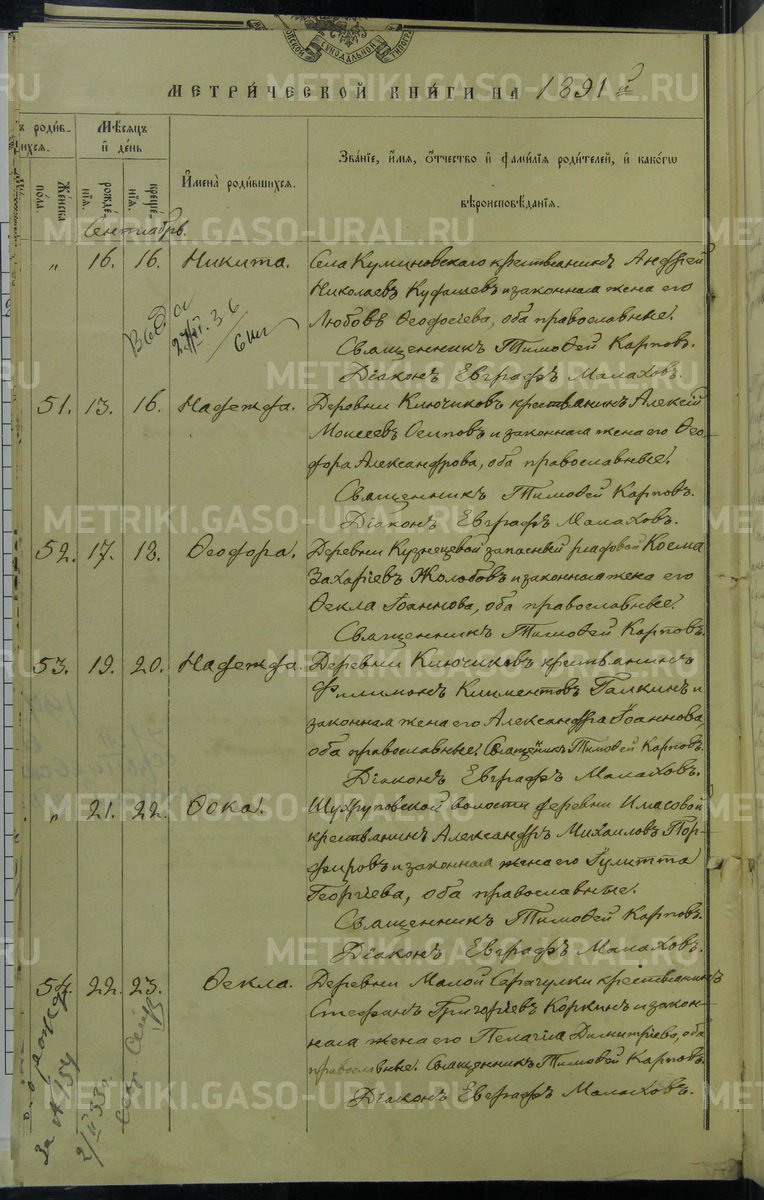 СУНОДАЛЬНОЙ
МЕТРИ́ЧЕСКОЙ КНИ́ГИ НА 1891 й
родив-
шихся.
Мѣсяцъ
и день
Имена родившихся.
Зва́нїе, и́мя, ѻ́тчество и фами́лїя роди́телей, и како́гѡ
вѣроисповѣ́данїя.
Же́нска
по́ла.
рожде́-
нїя.
креще́-
нїя.
Сентябрь.
„ 16. 16. Никита.
Села Куминовскаго крестьянинъ Андрей
Николаевъ Кудашевъ и законная жена его
Любовь Ѳеодосіева, оба православные.
Священникъ Тимоѳей Карповъ.
Діаконъ Евграфъ Малаховъ.
51. 13. 16. Надежда.
Деревни Ключиковъ крестьянинъ Алексѣй
Моисеевъ Осиповъ и законная жена его Ѳео-
дора Александрова, оба православные.
Священникъ Тимоѳей Карповъ.
Діаконъ Евграфъ Малаховъ.
52. 17. 18. Ѳеодора.
Деревни Кузнецовой запасный рядовой Косма
Захаріевъ Жолобовъ и законная жена его
Ѳекла Іоаннова, оба православные.
Священникъ Тимоѳей Карповъ.
53. 19. 20. Надежда.
Деревни Ключиковъ крестьянинъ
Филимонъ Климентовъ Галкинъ и
законная жена его Александра Іоаннова,
оба православные. Священникъ Тимоѳей Карповъ.
Діаконъ Евграфъ Малаховъ.
„ 21. 22. Ѳока.
волости деревни
крестьянинъ Александръ Михаиловъ Пор-
фировъ и законная жена его Іулитта
Георгіева, оба православные.
Священникъ Тимоѳей Карповъ.
Діаконъ Евграфъ Малаховъ.
54. 22. 23. Ѳекла.
Деревни Малой Сарачулки крестьянинъ
Стефанъ Григоріевъ Коркинъ и закон-
ная жена его Пелагія Димитріева, оба
православные. Священникъ Тимоѳей Карповъ.
Діаконъ Евграфъ Малаховъ.
За № 154
METRIKI.GASO-URAL.RU